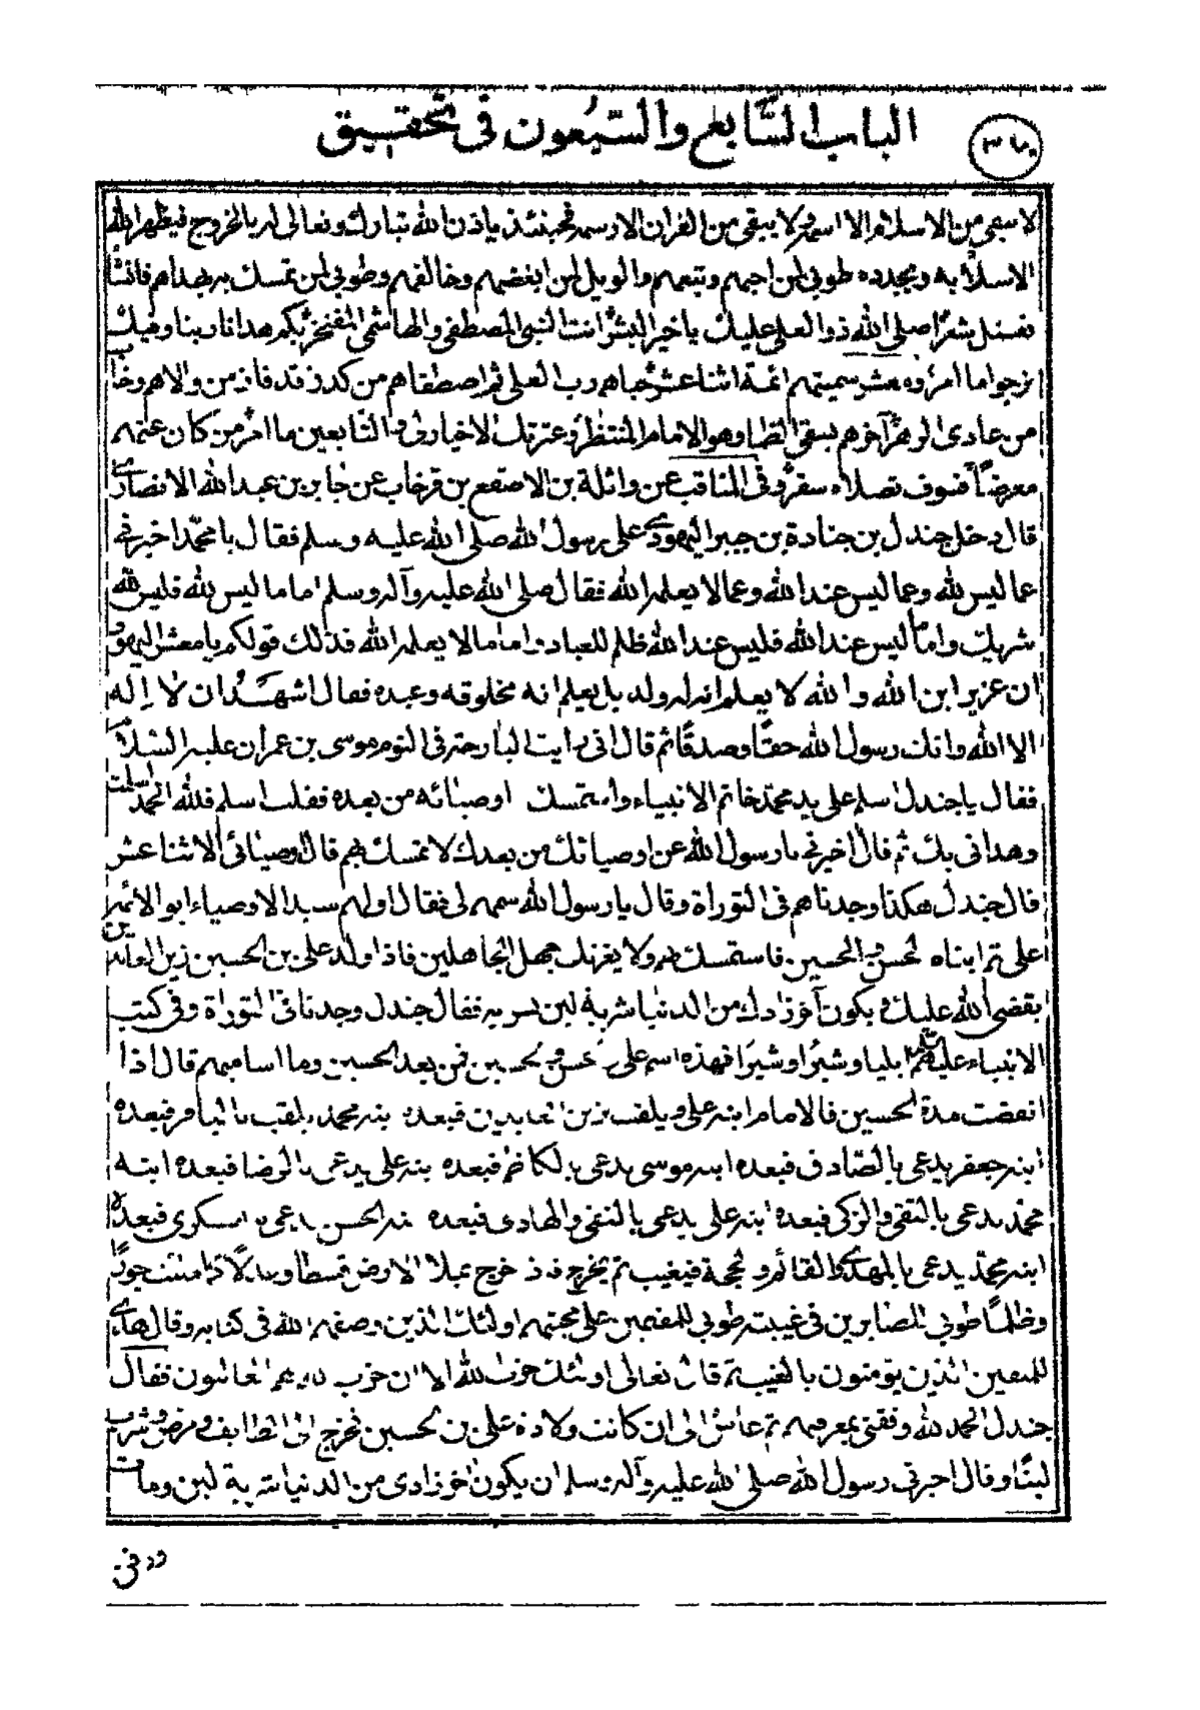 الباب السّابع والسّبعون فى تحقيق
٣٧٠
لا يبقى من الاسلام الا اسمه ولا يبقى من القران الا رسمه فحينئذ ياذن الله تبارك وتعالى له بالخروج فيظهر الله
الاسلام به ويجدده طوبى لمن احبهم وتبعهم والويل لمن ابغضهم وخالفهم وطوبى لمن تمسك بهداهم فانشا
نعثل شعرًا صلى الله ذو العلى عليك يا خير البشر انت النبى المصطفى والهاشمى المفتخر بكم هدانا ربنا وفيك
نرجوا ما امر ومعشر سميتهم ائمة اثنا عشر حباهم رب العلى ثم اصطفاهم من كدر قد فاز من والاهم وخاب
من عادى الزهر آخرهم يسقى الظما وهو الامام المنتظر وعترتك الاخيار لى والتابعين ما امر من كان عنهم
معرضًا فسوف تصلاه سقر وفى المناقب عن واثلة بن الاصقع بن قرخاب عن جابر بن عبد الله الانصارى
قال دخل جندل بن جنادة بن جبير اليهودى على رسول الله صلى الله عليه وسلم فقال يا محمّد اخبرنى
عما ليس لله وعما ليس عند الله وعما لا يعلمه الله فقال صلى الله عليه وآله وسلم اما ما ليس لله فليس لله
شريك واما ما ليس عند الله فليس عند الله ظلم للعباد واما ما لا يعلمه الله فذلك قولكم يا معشر اليهود
ان عزير ابن الله والله لا يعلم انه له ولد بل يعلم انه مخلوقه وعبده فقال اشهد ان لا اله
الا الله وانك رسول الله حقًا وصدقًا ثم قال انى رايت البارحة فى النوم موسى بن عمران عليه السّلام
فقال يا جندل اسلم على يد محمّد خاتم الانبياء واستمسك اوصيائه من بعده فقلت اسلم فلله الحمد اسلمت
وهدانى بك ثم قال اخبرنى يا رسول الله عن اوصيائك من بعدك لاتمسك بهم قال اوصيائى الاثنا عشر
قال جندل هكذا وجدناهم فى التوراة وقال يا رسول الله سمهم لى فقال اولهم سيد الاوصياء ابو الائمة
على ثم ابناه الحسن والحسين فاستمسك بهم ولا يغرنك جهل الجاهلين فاذا ولد على بن الحسين زين العابدين
يقضى الله عليك ويكون آخر زادك من الدنيا شربة لبن تشربه فقال جندل وجدنا فى التوراة وفى كتب
الانبياء عليهم السلام ايليا وشبرًا وشبيرًا فهذه اسم على والحسن والحسين فمن بعد الحسين وما اساميهم قال اذا
انقضت مدة الحسين فالامام ابنه على ويلقب بزين العابدين فبعده ابنه محمد يلقب بالباقر فبعده
ابنه جعفر يدعى بالصّادق فبعده ابنه موسى يدعى بالكاظم فبعده ابنه على يدعى بالرضا فبعده ابنه
محمّد يدعى بالتقى والزكى فبعده ابنه على يدعى بالنقى والهادى فبعده ابنه الحسن يدعى بالعسكرى فبعده
ابنه محمّد يدعى بالمهدى والقائم والحجة فيغيب ثم يخرج فاذا خرج يملأ الارض قسطا وعدلًا كما ملئت جورًا
وظلمًا طوبى للصابرين فى غيبته طوبى للمقيمين على محبتهم اولئك الذين وصفهم الله فى كتابه وقال هدى
للمتقين الذين يؤمنون بالغيب ثم قال تعالى اولئك حزب الله الا ان حزب الله هم الغالبون فقال
جندل الحمد لله وفقنى بمعرفتهم ثم عاش الى ان كانت ولادة على بن الحسين فخرج الى الطايف ومرض وشرب
لبنًا وقال اخبرنى رسول الله صلى الله عليه وآله وسلم ان يكون آخر زادى من الدنيا شربة لبن ومات